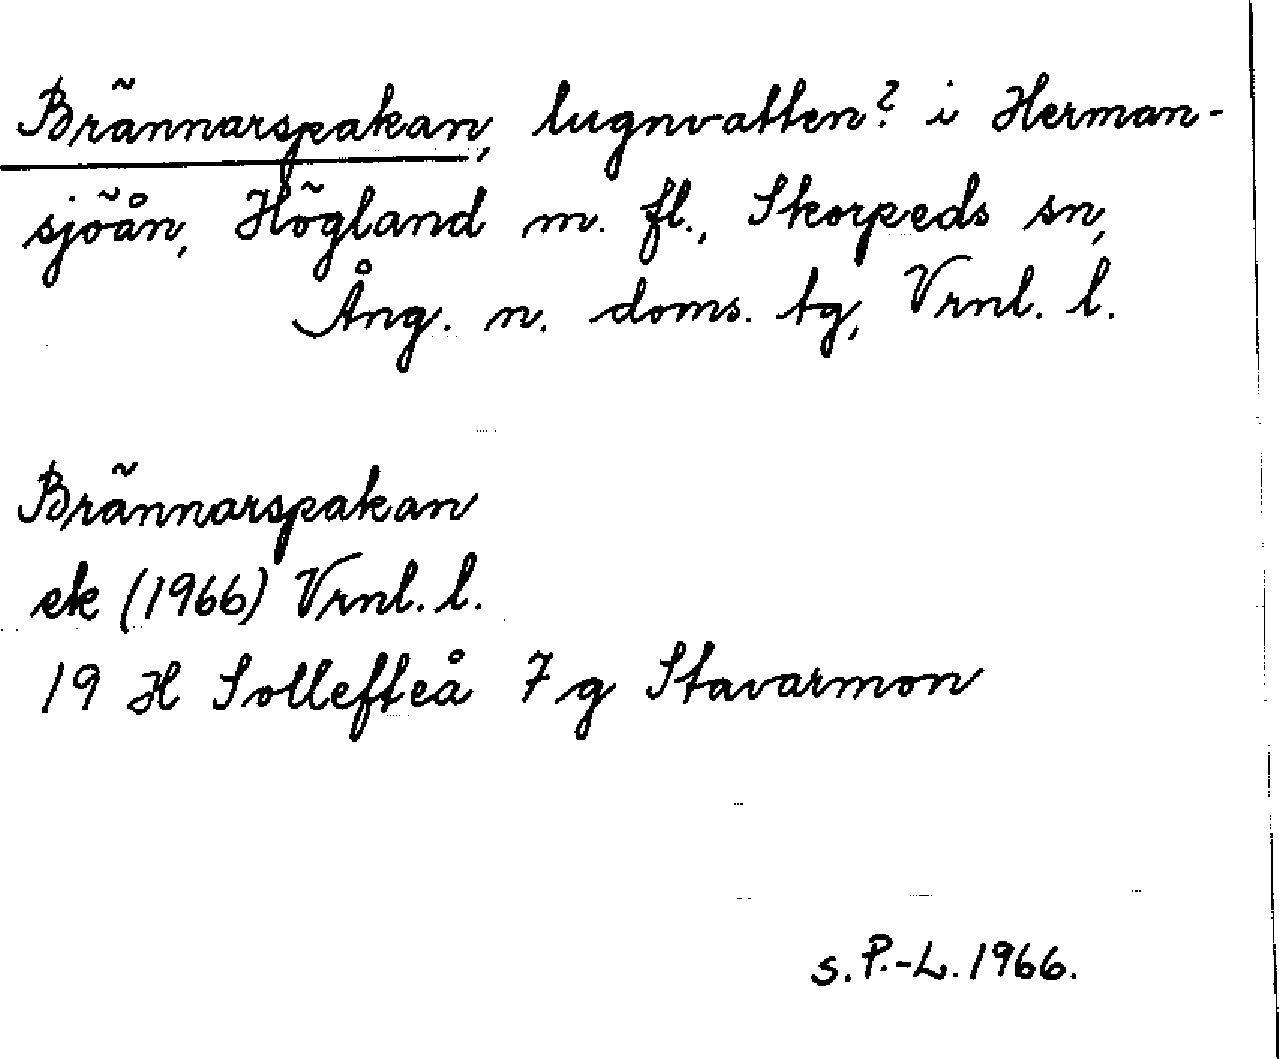 Brännarspakan, lugnvatten? i Herman-
sjöån, Högland m. fl., Skorpeds sn,
Ång. n. doms. tg, Vrnl. l.
Brännarspakan
ek (1966) Vrnl. l.
19 H Sollefteå 7 g Stavarmon
s. P.-L. 1966.